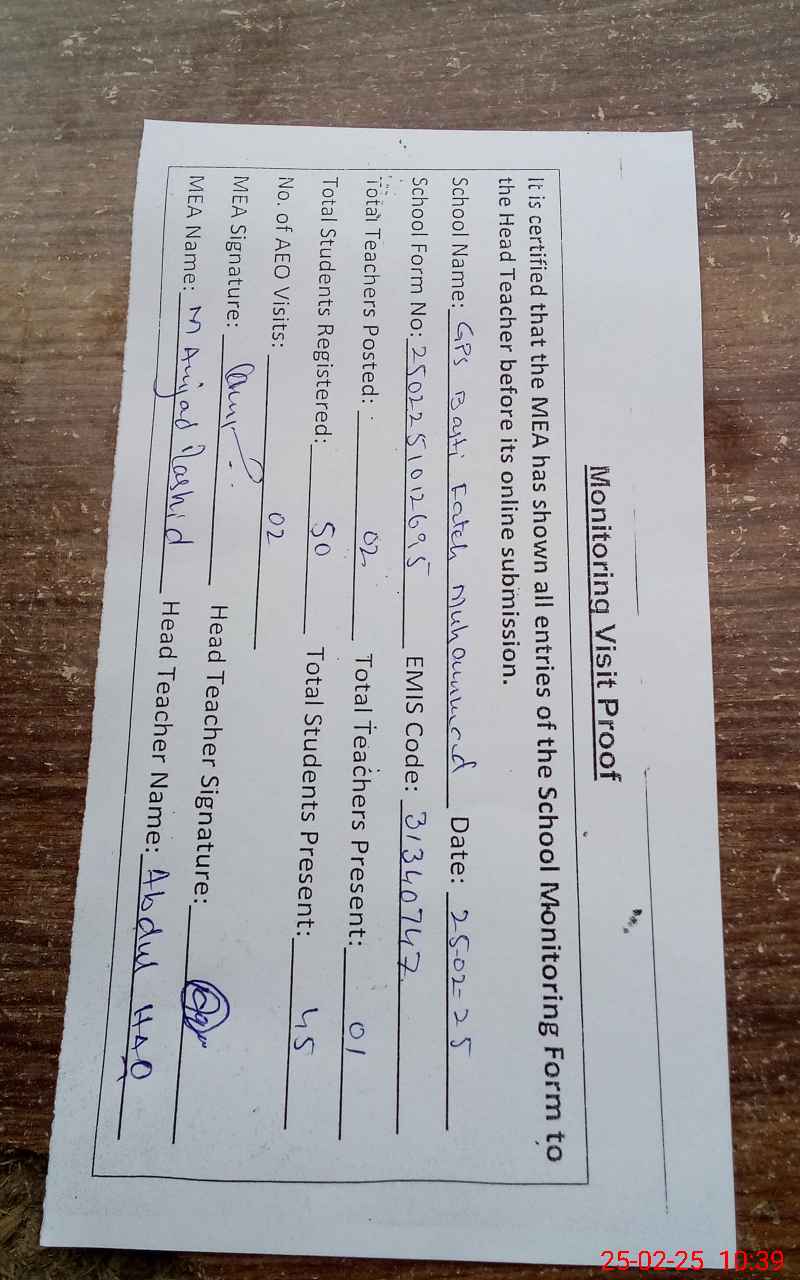 Monitoring Visit Proof
It is certified that the MEA has shown all entries of the School Monitoring Form to
the Head Teacher before its online submission.
School Name: GPS Basti Fateh Muhammad Date: 25-02-25
School Form No: 2502251012695 EMIS Code: 31340747
Total Teachers Posted: 02 Total Teachers Present: 01
Total Students Registered: 50 Total Students Present: 45
No. of AEO Visits: 02
MEA Signature: Head Teacher Signature:
MEA Name: M Amjad Rashid Head Teacher Name: Abdul HAQ
25-02-25 10:39